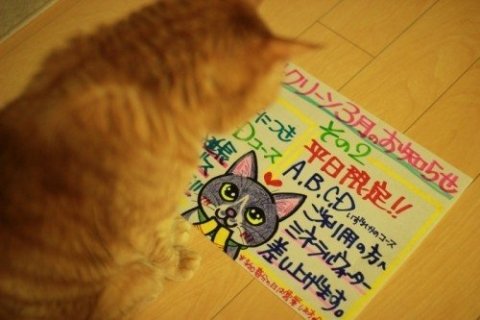 クリーン3月のお知らせ
その2
平日限定!!
A.B.C.D
いずれかのコース
ご利用の方へ
ミネラルウォーター
差し上げます。
につき
Dコース